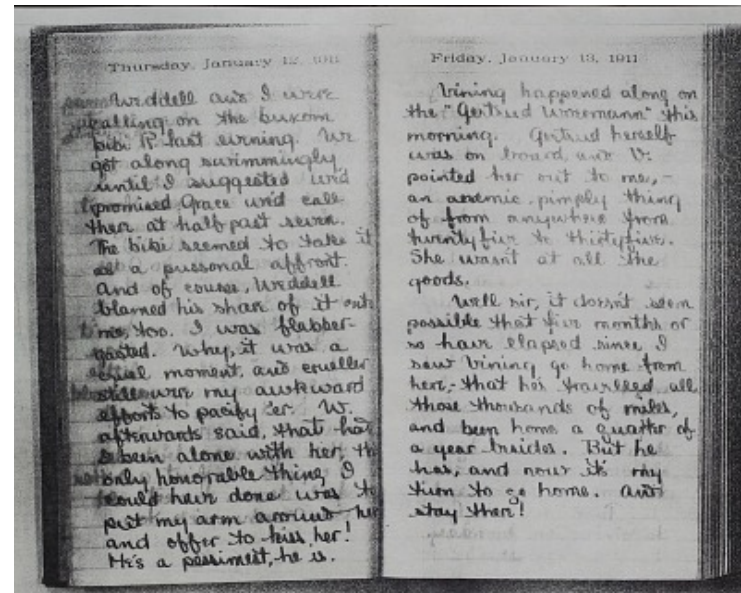 Thursday, January 12, 1911
Weddell and I were
calling on the buxom
bibi P. last evening. We
got along swimmingly
until I suggested we'd
promised Grace we'd call
then at half past seven.
The bibi seemed to take it
as a pussonal affront.
And of course, Weddell
blamed his share of it onto
me, too. I was flabber-
gasted. Why, it was a
cruel moment, and crueller
still were my awkward
efforts to pacify 'er. W.
afterwards said, that had
I been alone with her, the
only honorable thing I
could have done was to
put my arm around her
and offer to kiss her!
He's a pessimest, he is.
Friday, January 13, 1911
Vining happened along on
the "Gertrud Woermann" this
morning. Gertrud herself
was on board, and V.
pointed her out to me,-
an anemic, pimply thing
of from anywhere from
twentyfive to thirtyfive.
She wasn't at all the
goods.
Well sir, it doesn't seem
possible that five months or
so have elapsed since I
saw Vining go home from
here,- that he's travelled all
those thousands of miles,
and been home a quarter of
a year besides. But he
has, and now it's my
turn to go home. And
stay there!